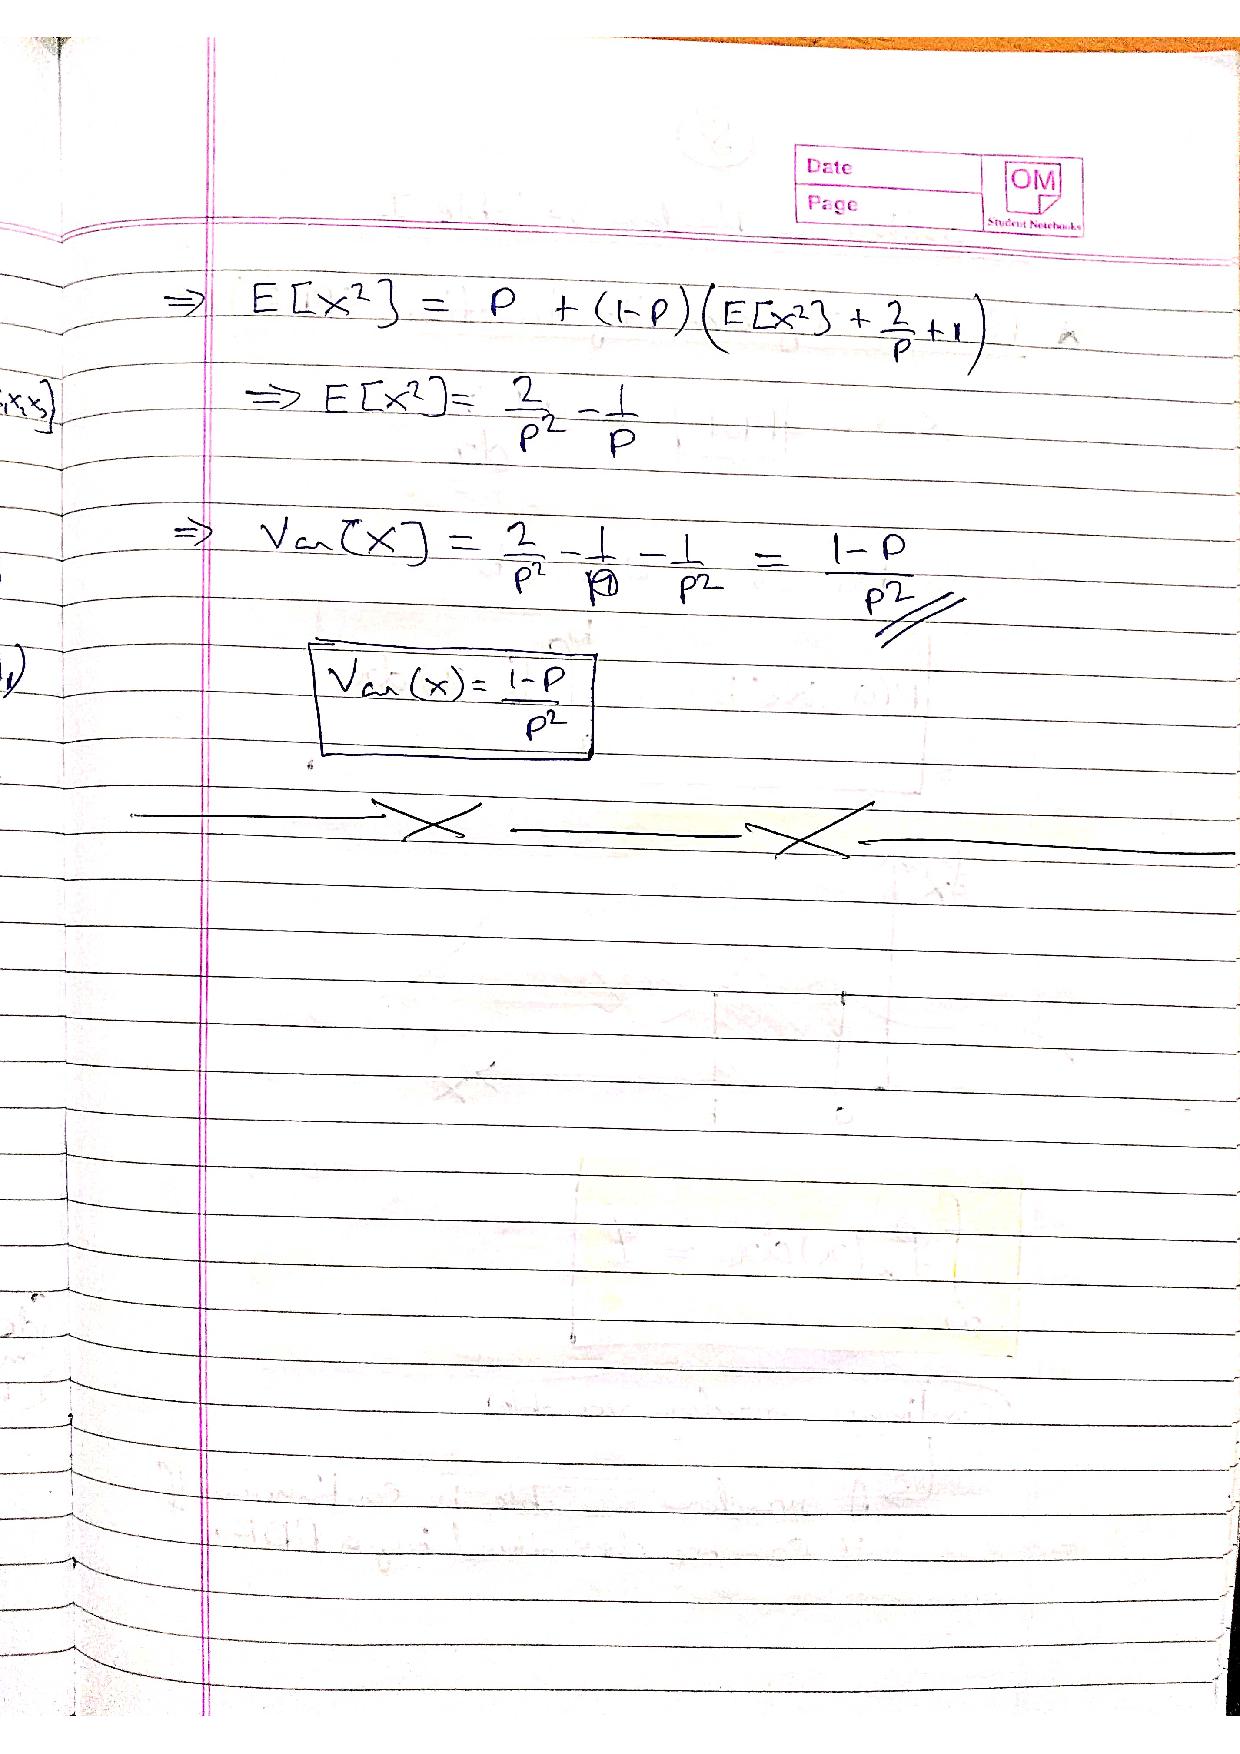 Date
Page
OM
Student Notebooks
⇒ E[X²] = P + (1-P)(E[X²] + 2/P + 1)
⇒ E[X²] = 2/P² - 1/P
⇒ Var[X] = 2/P² - 1/P - 1/P² = 1-P/P²
Var(x) = 1-P/P²